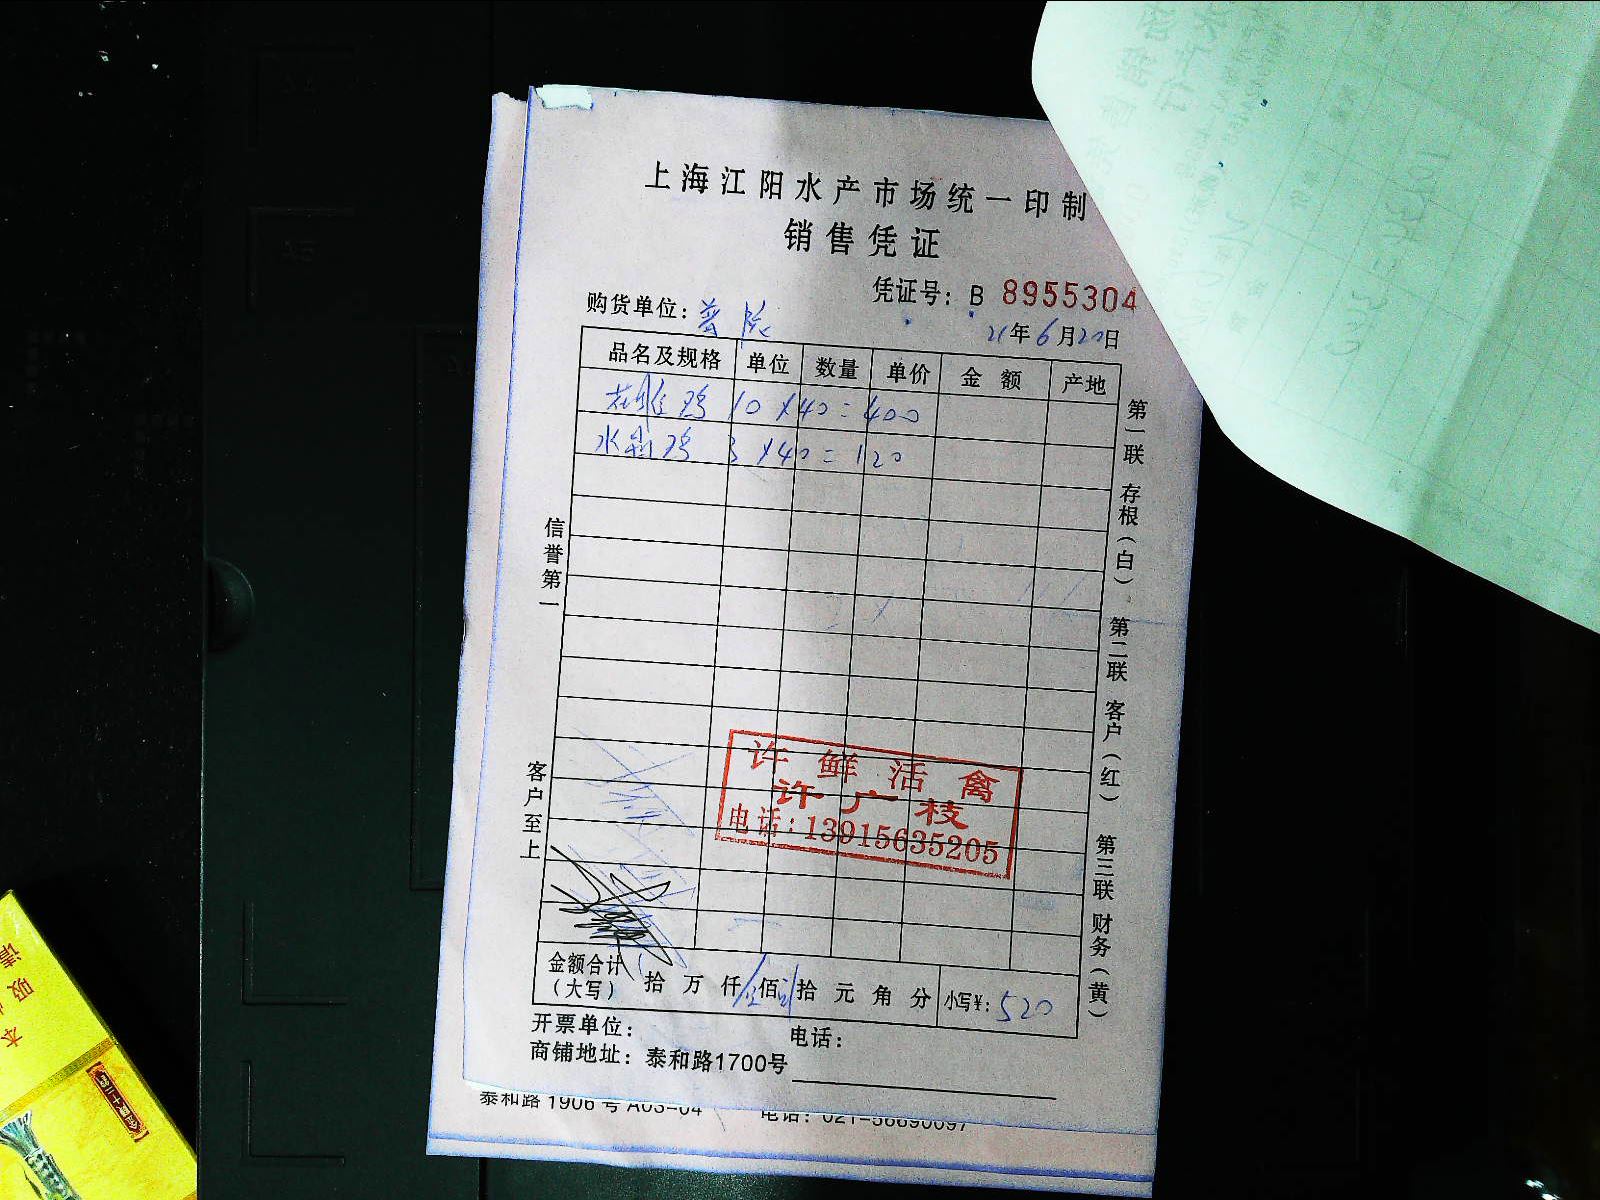 上海江阳水产市场统一印制
销售凭证
凭证号：B 8955304
购货单位：普陀
21年6月20日
品名及规格 单位 数量 单价 金额 产地
鸡 10 X 40 = 400
水 鸡 3 X 40 = 120
信誉第一
客户至上
第一联 存根（白） 第二联 客户（红） 第三联 财务（黄）
许 鲜 活 禽
许广枝
电话：13915635205
金额合计（大写） 拾 万 仟 佰 拾 元 角 分 小写¥：520
开票单位： 电话：
商铺地址：泰和路1700号
泰和路1906号A03-04 电话：021-56690097
请
吸
本